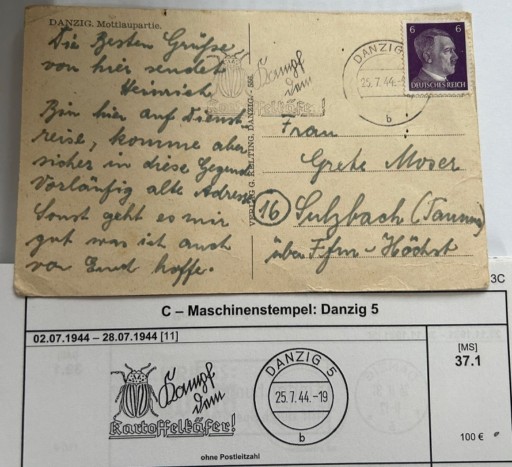 DANZIG. Mottlaupartie.
Die Besten Grüße
von hier sendet
Heinrich
Bin hier auf Dienst
reise, komme aber
sicher in diese Gegend
Vorläufig alte Adresse
Sonst geht es mir
gut was ich auch
von Euch hoffe.
VERLAG G. KELTING, DANZIG
Kampf
dem
Kartoffelkäfer!
DANZIG
25.7.44.
b
6 6
DEUTSCHES REICH
Frau
Grete Moser
16 Sulzbach (Taunus)
über Ffm-Höchst
3C
C – Maschinenstempel: Danzig 5
02.07.1944 – 28.07.1944 [11]
[MS]
37.1
Kampf
dem
Kartoffelkäfer!
DANZIG 5
25.7.44.-19
b
100 €
ohne Postleitzahl